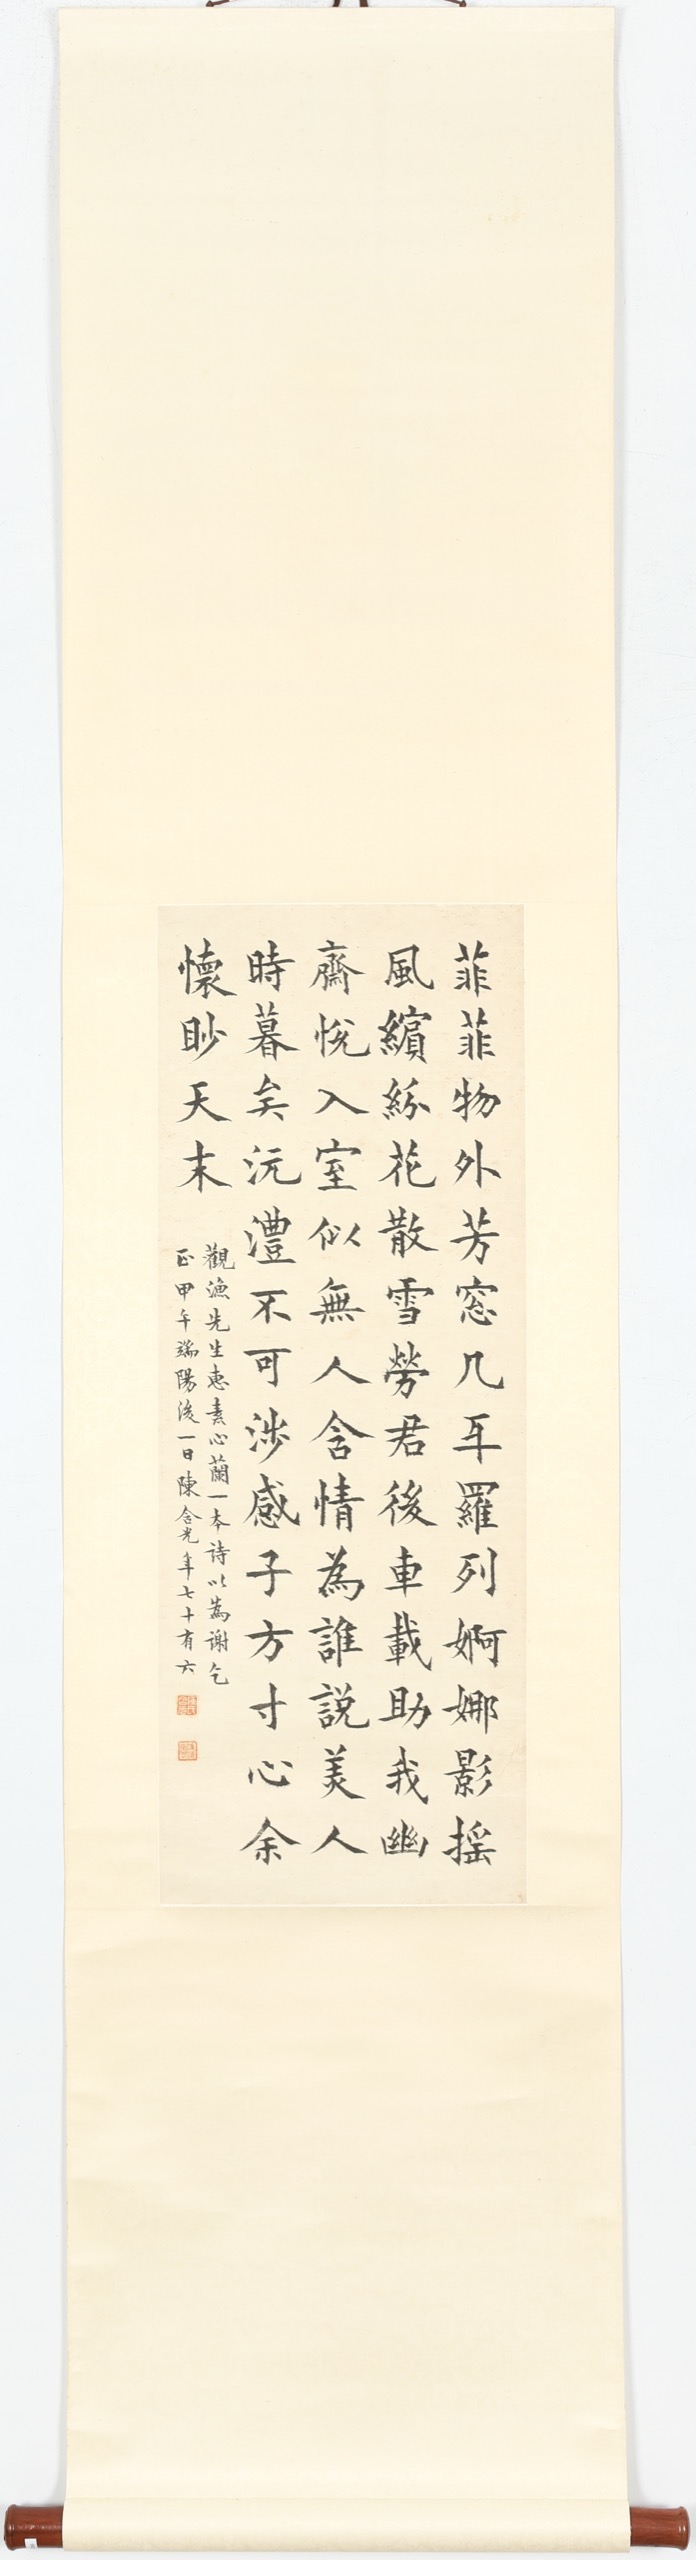 菲菲物外芳窓几耳羅列婀娜影搖
風繽紛花散雪勞君後車載助我幽
齋悅入室似無人含情為誰說美人
時暮矣沅澧不可涉感子方寸心余
懷眇天末
觀漁先生惠素心蘭一本詩以為謝乞
正甲午端陽後一日陳含光年七十有六